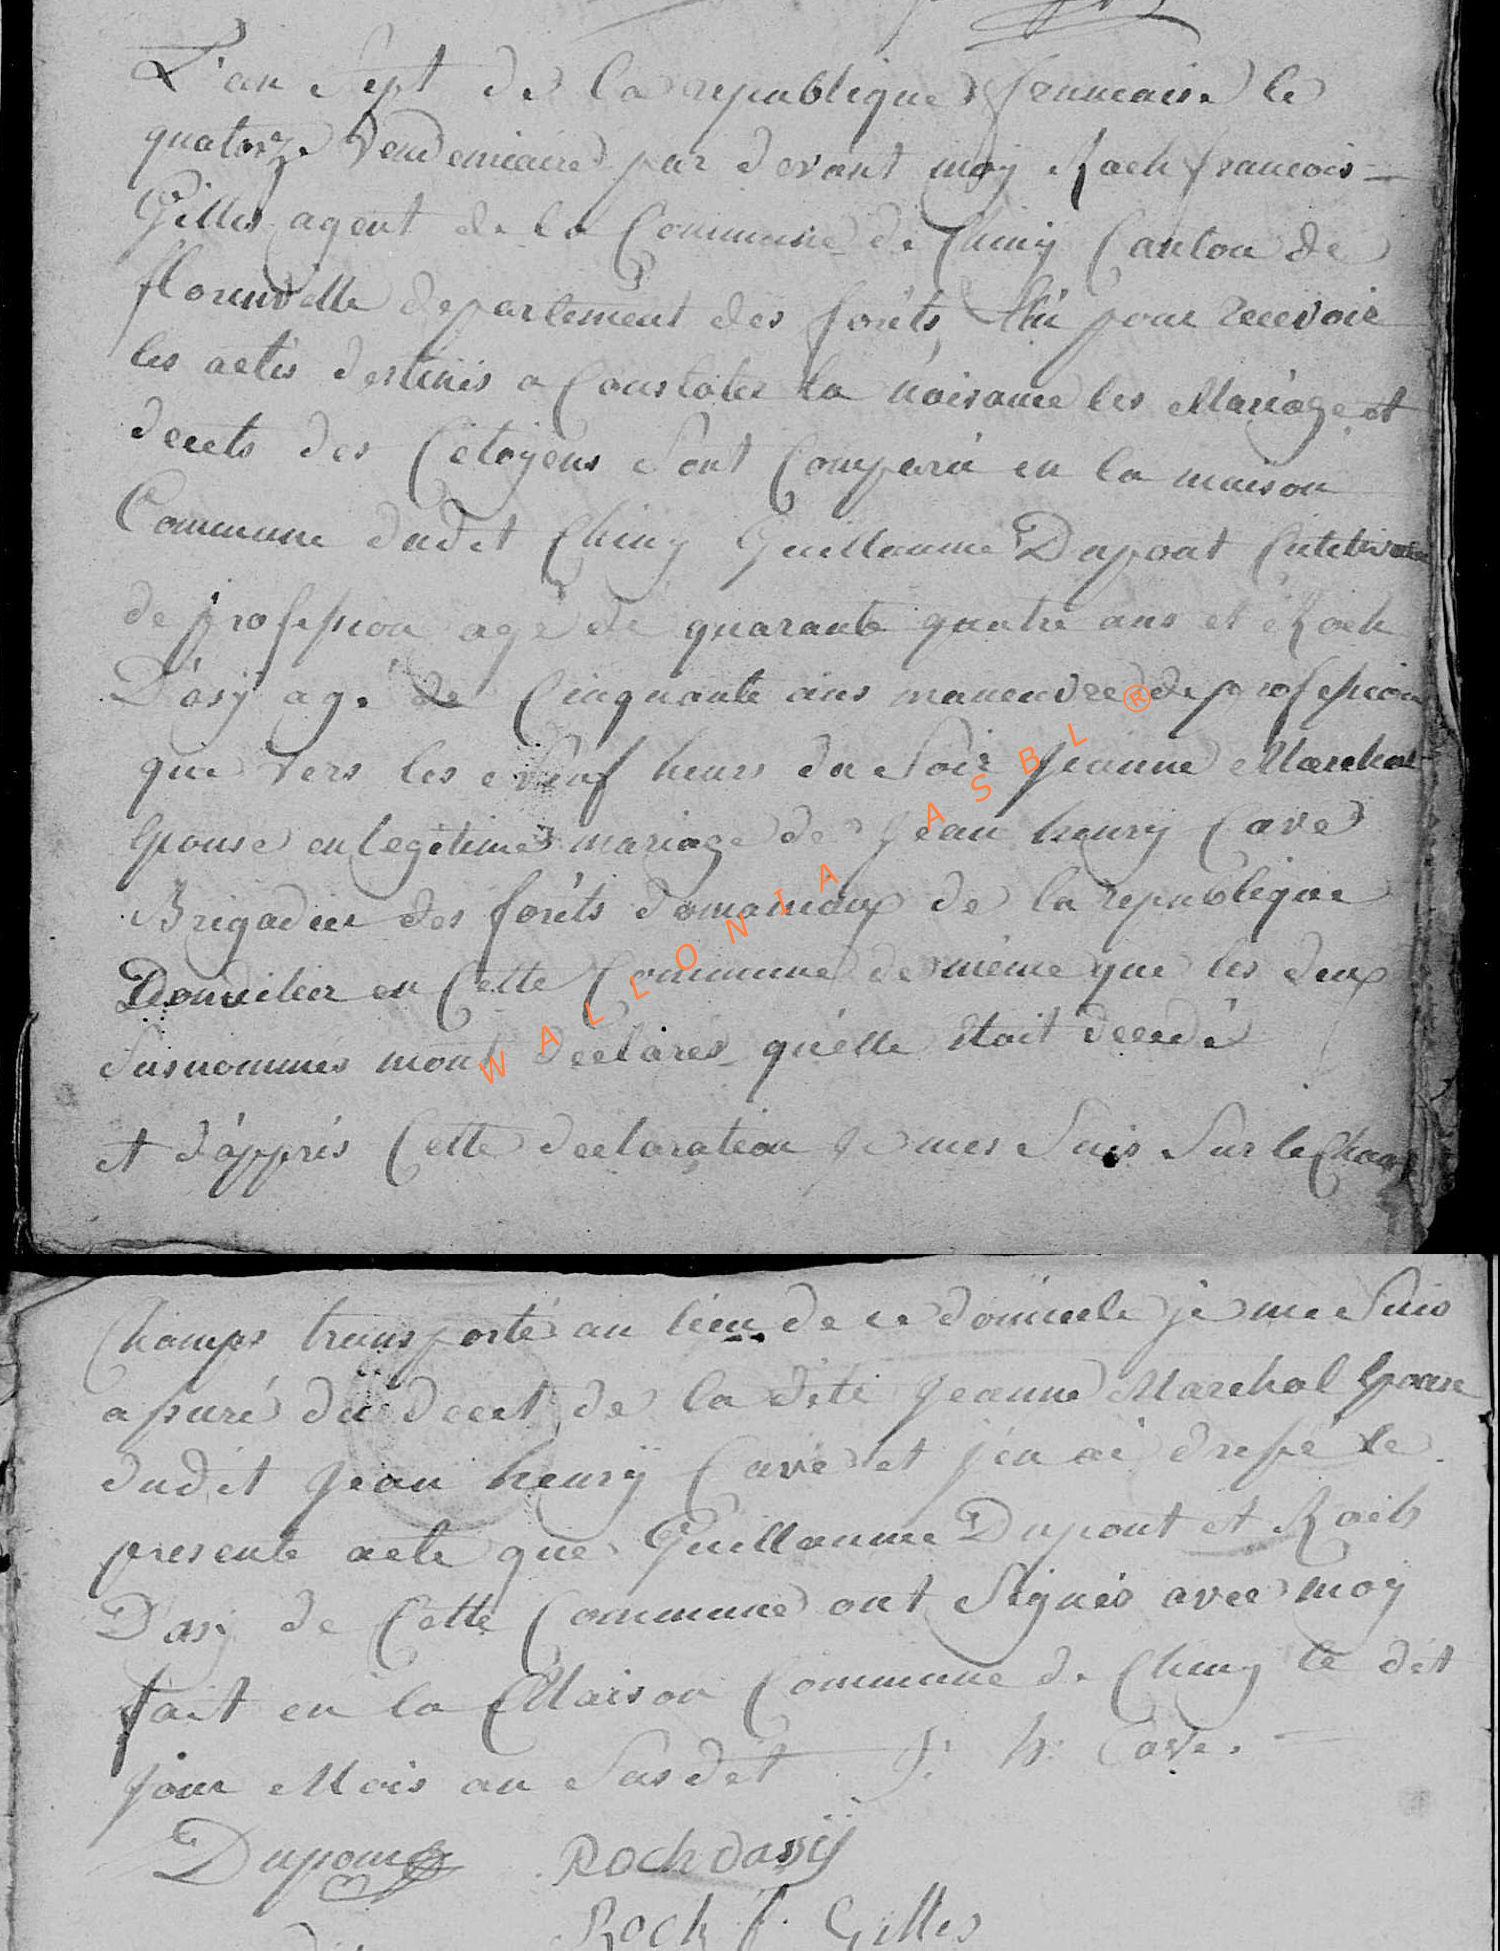 L'an sept de la republique francaise le
quatorze Vendemiaire par devant moy Roch francois
Gilles agent de la Commune de Chiny Canton de
florenville departement des forêts, Elu pour recevoir
les actes destinés a Constater la naisance les Mariage et
decets des Citoyens Sont Comparu en la maison
Commune dudit Chiny Guillaume Dupont Cultivateur
de profession agé de quarante quatre ans et Roch
Dasÿ agé de Cinquante ans maneuvre de profession
que vers les neuf heurs du Soir Jeanne Marchal
Epouse en legitime mariage de Jean henry Cave
Brigadier des forêts domaniaux de la republique
Domicilier en Cette Commune de même que les deux
Susnommes mont declarés qu'elle Etait decedé
et d'apprés Cette declaration je mes Suis Sur le Champ
Champs transporté au lieu de ce domicile je me Suis
assuré du decet de la dite Jeanne Marchal Epouse
dudit Jean henrÿ Cavé et j'en ai dressé le
presente acte que Guillaume Dupont et Roch
Dasÿ de Cette Commune ont Signés avec moy
fait en la Maison Commune de Chiny le dit
jour Mois an Susdit J: h: Cave.
Dupont Roch dassÿ
Roch f. Gilles
WALLONIA ASBL ®